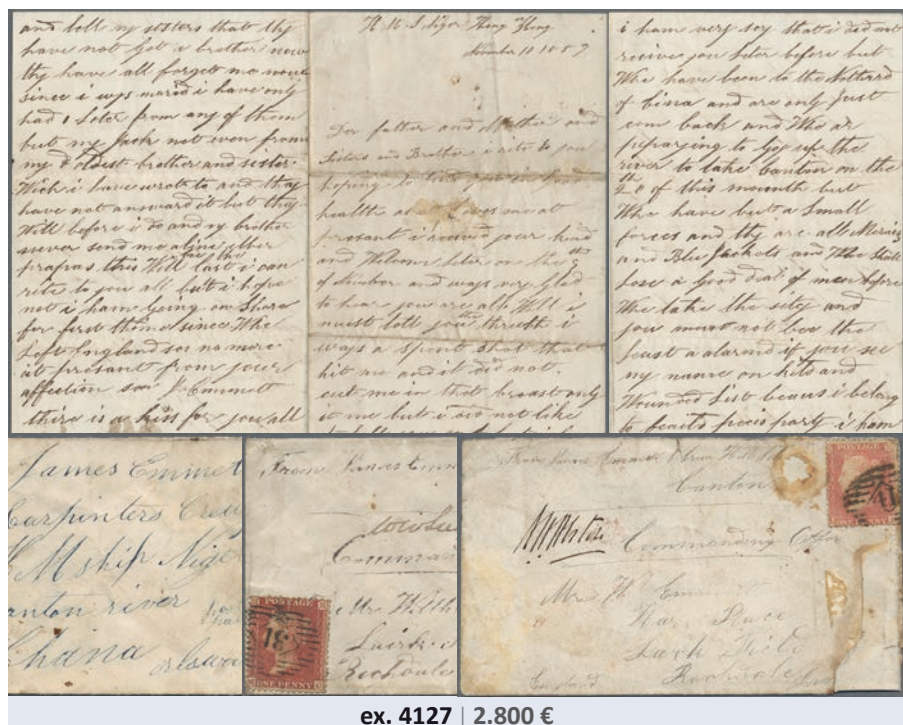 and tell my sisters that thy
have not got a brother now
thy have all forget me now
since i wys marid i have only
had 1 Leter from any of them
but my Jack not even from
my oldest brother and sister
Wich i have wrote to and thay
have not answard it but they
Will before i do and my brother
never send me aline
prapras this Will last i can
rite to you all but i hope
not i ham going on Shore
for first thime since Whe
Left England so no more
at presant from your
affection son J Emmett
thire is a kiss for you all
H M S Niger Hong Kong
November 10 1857
Der father and Mother and
Sisters and Brother i rite to you
hoping to find you in Good
health as it Leves me at
presant i receved your kind
and Welcome leter on the
of November and ways very glad
to hear you are all Well i
must tell you the thruth i
ways a Spent Shot that
hit me and it did not
cut me in that breast only
it me but i did not like
i ham very sory that i did not
receive you leter before but
Whe have been to the
of Cina and are only Just
cum back and Whe ar
peparying to Goy up the
river to take Canton on the
20th of this mounth but
Whe have but a Small
forces and thy are all Marins
and Blu Jackets and Whe Shall
Lose a good deal of men before
Whe take the sity and
you must not bee the
least a alarmd if you see
my name on kild and
Wounded List becaus i belong
to feild peices party i ham
James Emmet
Carpinters Crew
H M ship Nige
Canton river
Chana
From James Emm
Comman
Mr
POSTAGE
ONE PENNY
From James Emmett
Canton
Commanding Offer
Mr W Emmett
Place
Field
Rochdale
England
ONE PENNY
ex. 4127 | 2.800 €